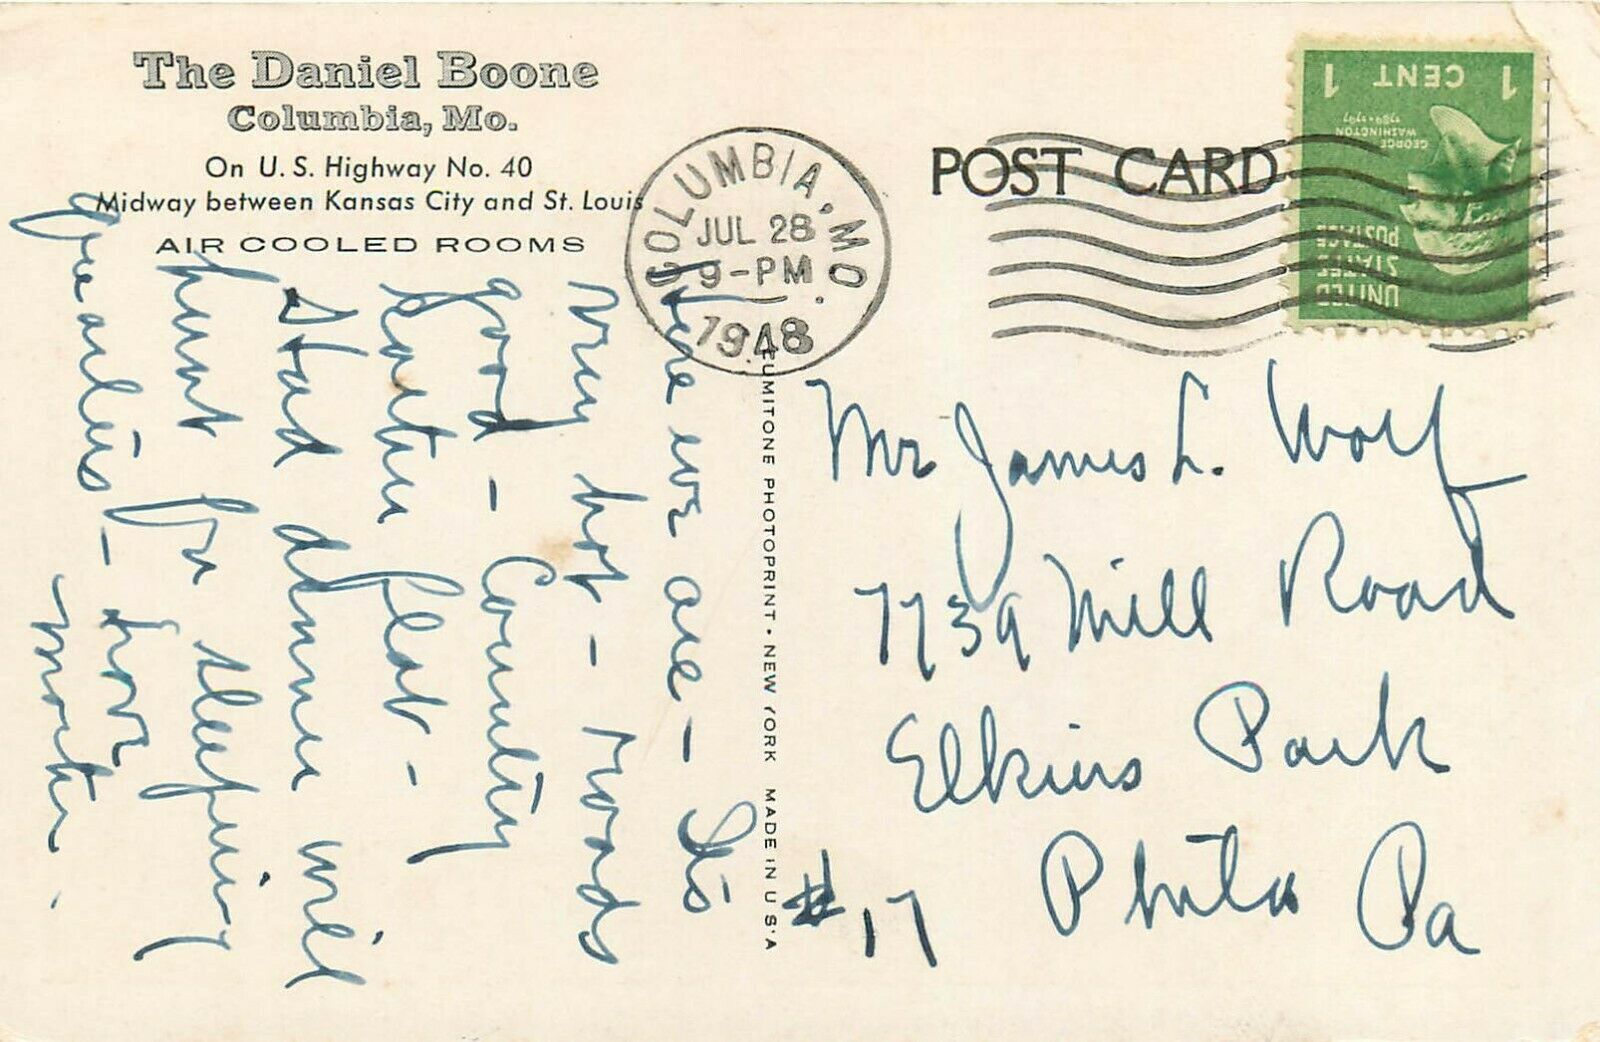 The Daniel Boone
Columbia, Mo.
On U. S. Highway No. 40
Midway between Kansas City and St. Louis
AIR COOLED ROOMS
COLUMBIA, MO.
JUL 28
9-PM
1948
POST CARD
1 CENT 1
GEORGE WASHINGTON
1789-1797
UNITED STATES POSTAGE
LUMITONE PHOTOPRINT • NEW YORK MADE IN U S A
Here we are - Its
very hot - roads
good - Country
rather flat -
Had dinner will
hunt for sleeping
quarters - Love
Mother.
Mr James L. Wolf
7739 Mill Road
Elkins Park
Phila Pa
#17